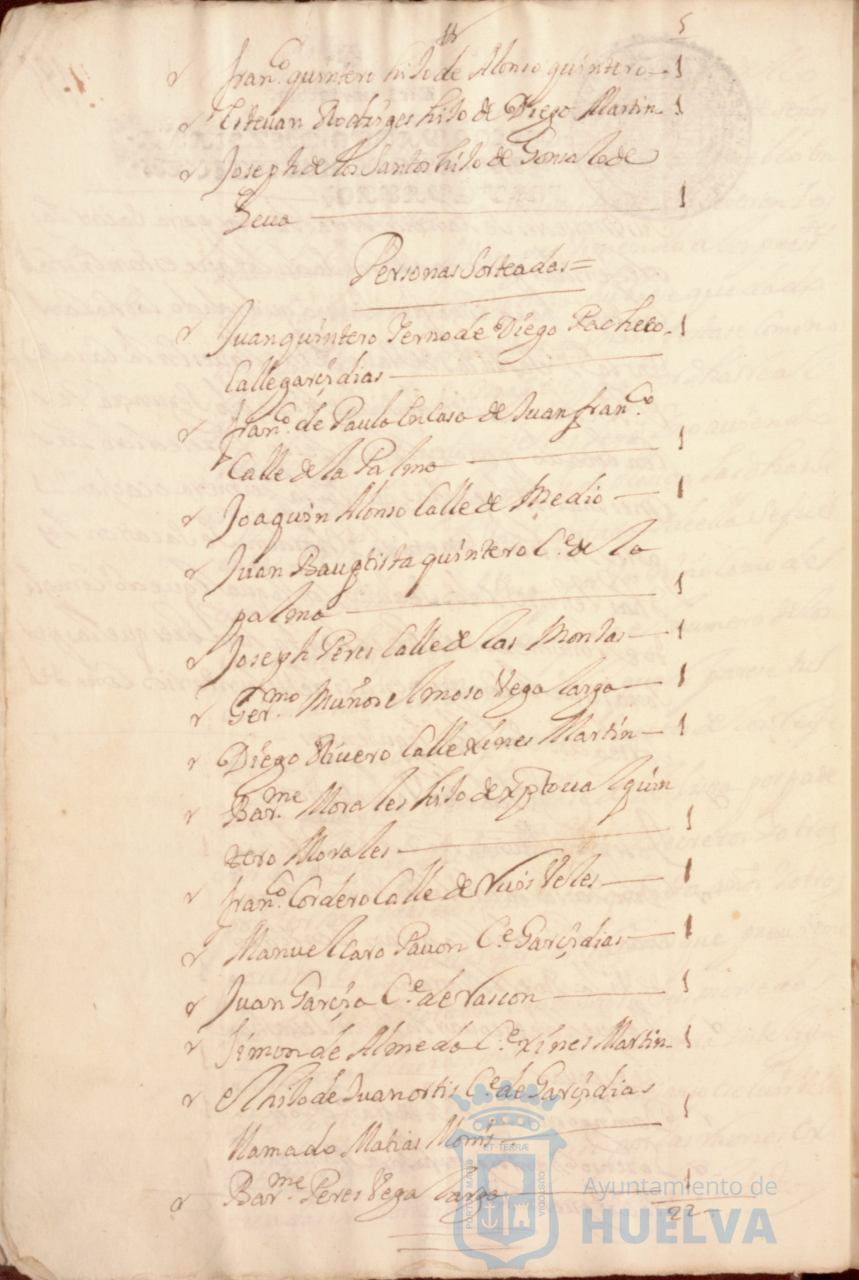 5
fran.co quintero hijo de Alonso quintero - 1
Estevan Rodriges hijo de Diego Martin - 1
Joseph de los Santos hijo de Gonsalo de
Leua — 1
Personas Sorteadas =
Juan quintero Yerno de Diego Pacheco - 1
Calle garçidias —
fran.co de Paula en Casa de Juan fran.co
Calle de la Palma — 1
Joaquin Alonso Calle de Medio — 1
Juan Bauptista quintero C.e de la
palma — 1
Joseph Peres Calle de las Monjas — 1
Ger.mo Muños el moso Vega larga — 1
Diego Riuero Calle xines Martin — 1
Bar.me Morales hijo de xptoual quin
tero Morales — 1
fran.co Cordero Calle de Ruis Veles — 1
Manuel Caro Pavon C.e Garçidias — 1
Juan Garçia C.e de Rascon — 1
Simon de Almeda C.e xines Martin - 1
el hijo de Juan ortis C.e de Garçidias
llamado Matias — 1
Bar.me Peres Vega larga — 1
22 -
PORTUS MARIS
ET TERRÆ
CUSTODIA
Ayuntamiento de
HUELVA